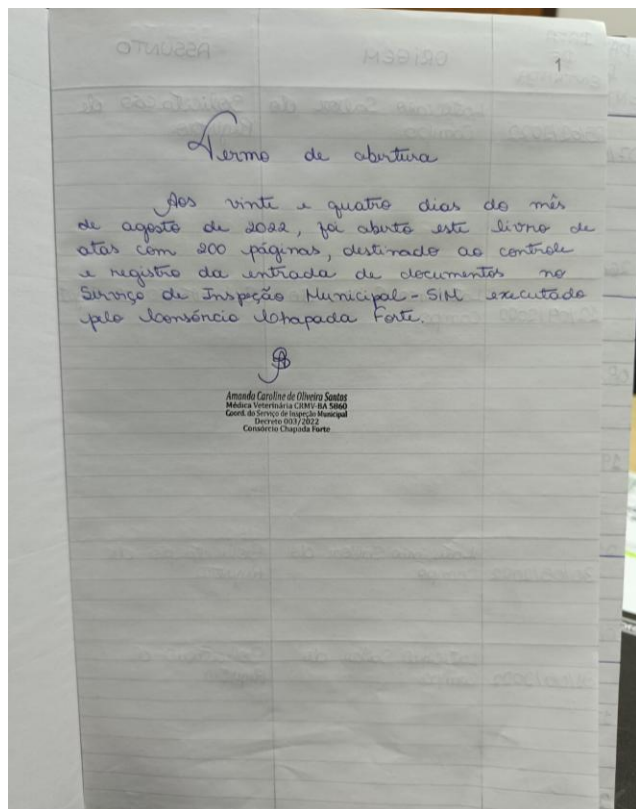 1
Termo de abertura
Aos vinte e quatro dias do mês
de agosto de 2022, foi aberto este livro de
atas com 200 páginas, destinado ao controle
e registro da entrada de documentos no
Serviço de Inspeção Municipal - SIM executado
pelo Consórcio Chapada Forte.
Amanda Caroline de Oliveira Santos
Médica Veterinária CRMV-BA 5860
Coord. do Serviço de Inspeção Municipal
Decreto 003/2022
Consórcio Chapada Forte